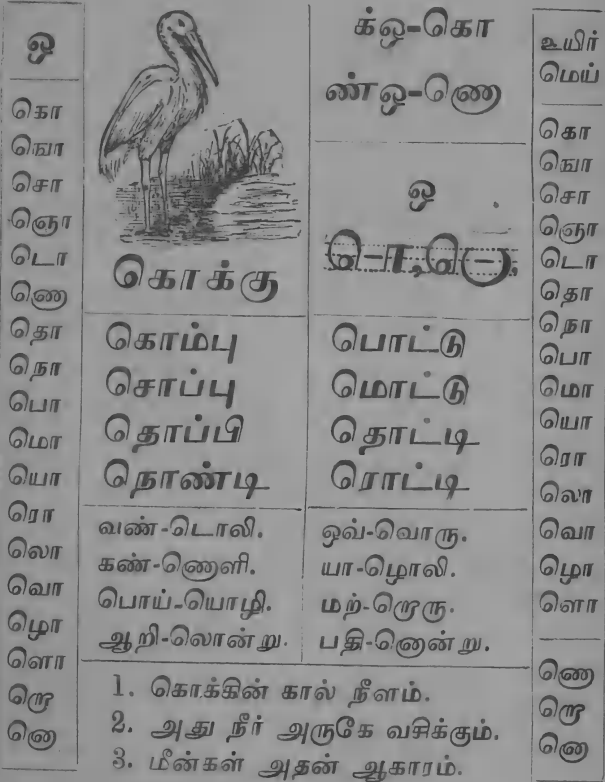 ஒ
கொ
ஙொ
சொ
ஞொ
டொ
ணொ
தொ
நொ
பொ
மொ
யொ
ரொ
லொ
வொ
ழொ
ளொ
றொ
னொ
கொக்கு
க்ஒ-கொ
ண்ஒ-ணொ
ஒ
கொம்பு
சொப்பு
தொப்பி
நொண்டி
பொட்டு
மொட்டு
தொட்டி
ரொட்டி
வண்-டொலி.
கண்-ணொளி.
பொய்-யொழி.
ஆறி-லொன்று.
ஒவ்-வொரு.
யா-ழொலி.
மற்-றொரு.
பதி-னொன்று.
1. கொக்கின் கால் நீளம்.
2. அது நீர் அருகே வசிக்கும்.
3. மீன்கள் அதன் ஆகாரம்.
உயிர்
மெய்
கொ
ஙொ
சொ
ஞொ
டொ
தொ
நொ
பொ
மொ
யொ
ரொ
லொ
வொ
ழொ
ளொ
ணொ
றொ
னொ